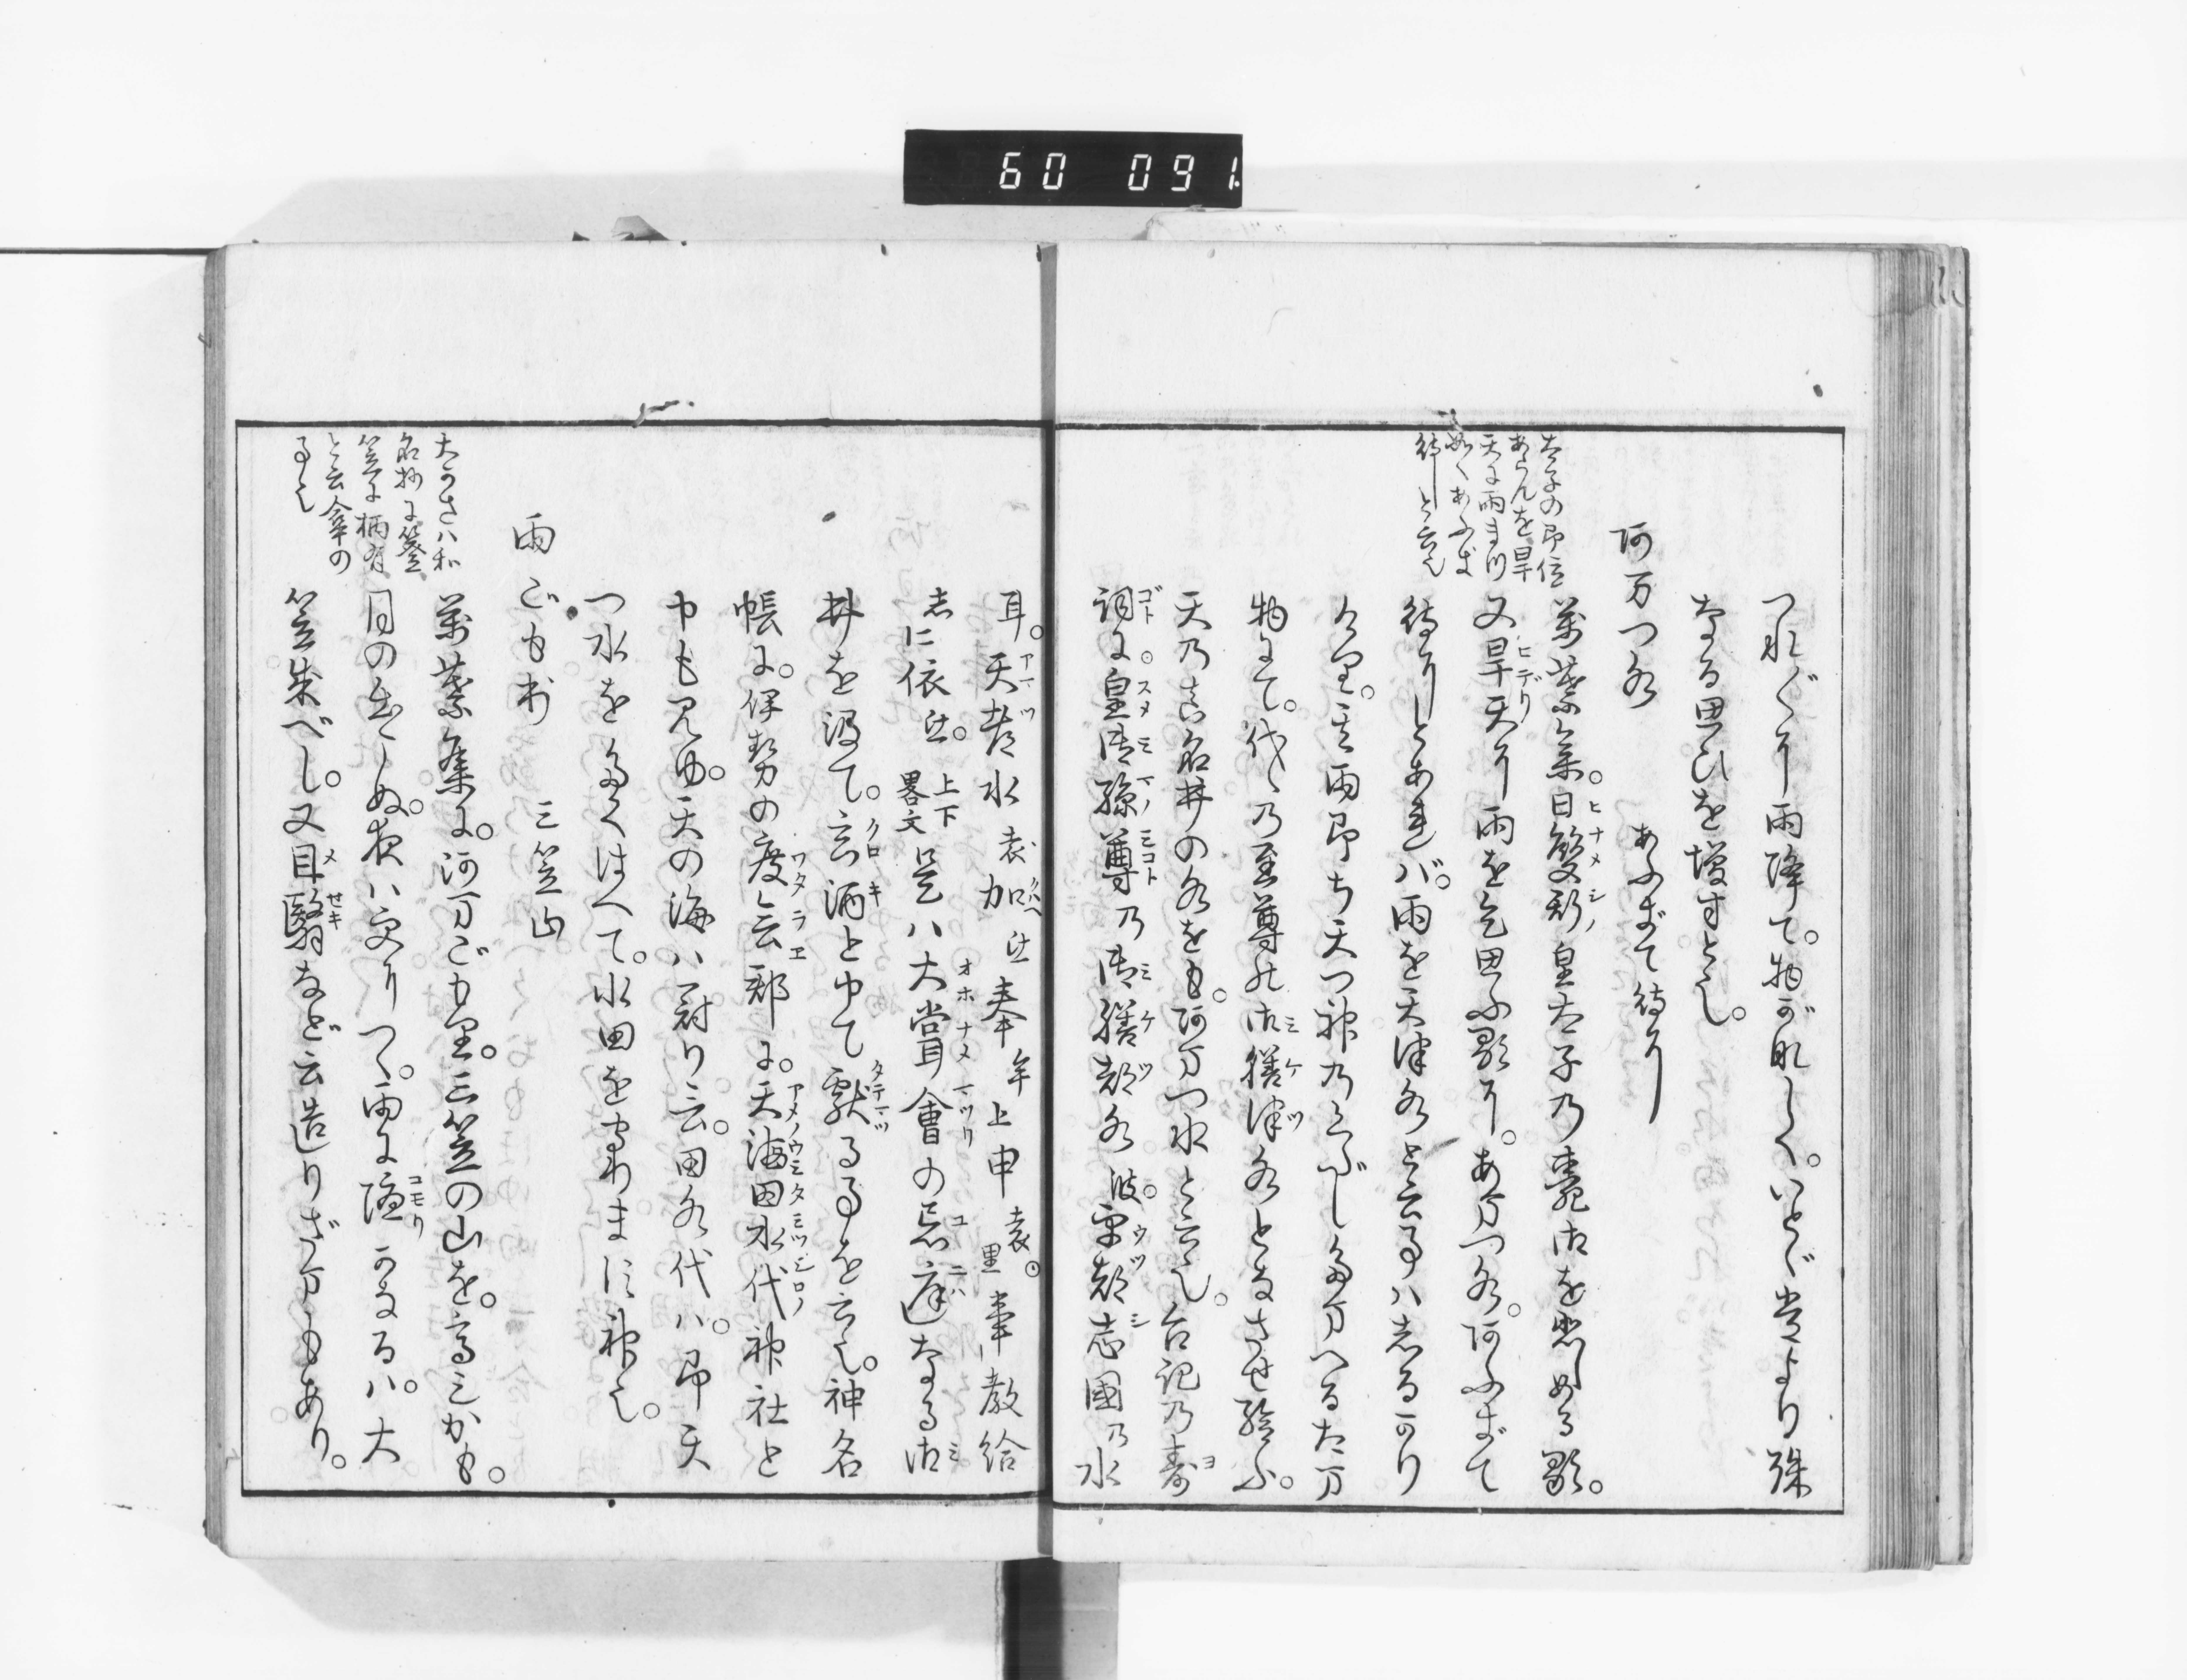 60 091
つれ〴〵雨降て。物がなしく。いとゞ常より殊
なる思ひを増すとし。
阿万つ水　あふぎて待り
萬葉集。日雙斯皇太子乃殯宮を悲める歌。
又旱天に雨を乞思ふ歌に。あ万つ水。阿ふぎて
待にしとあれバ。雨を天津水と云る事ハ志るかり
けり。其雨即ち天つ神乃くだし給へるた万
物にて。代々乃至尊乃御膳津水となさせ給ふ。
天乃真名井の水をも。阿万つ水と云し。台記乃壽
詞に。皇御孫尊乃御膳都水波。宇都志國乃水
太子の即位
あらんを旱
天に雨まつ
如くあふぎ
待しと云也
耳。天都水遠加弖奉牟止申遠。里事教給
志に依弖。上下畧文是ハ大嘗會の忌庭なる御
井を汲て。玄酒と申て献る事を云し。神名
帳に。伊勢の度会郡に。天海田水代神社と
申も見ゆ。天の海ハ冠り言。田水代ハ。即天
つ水を多くはへて。水田をまもります神也。
雨ごもり　三笠山
萬葉集に。阿万ごも里。三笠の山を。高みかも。
月の出こぬ。夜ハ更りつゝ。雨に隠つゝなるハ。大
笠成べし。又目翳など云造りざ万もあり。
大かさハ和
名抄に簦
笠に柄有
と云傘の
事也